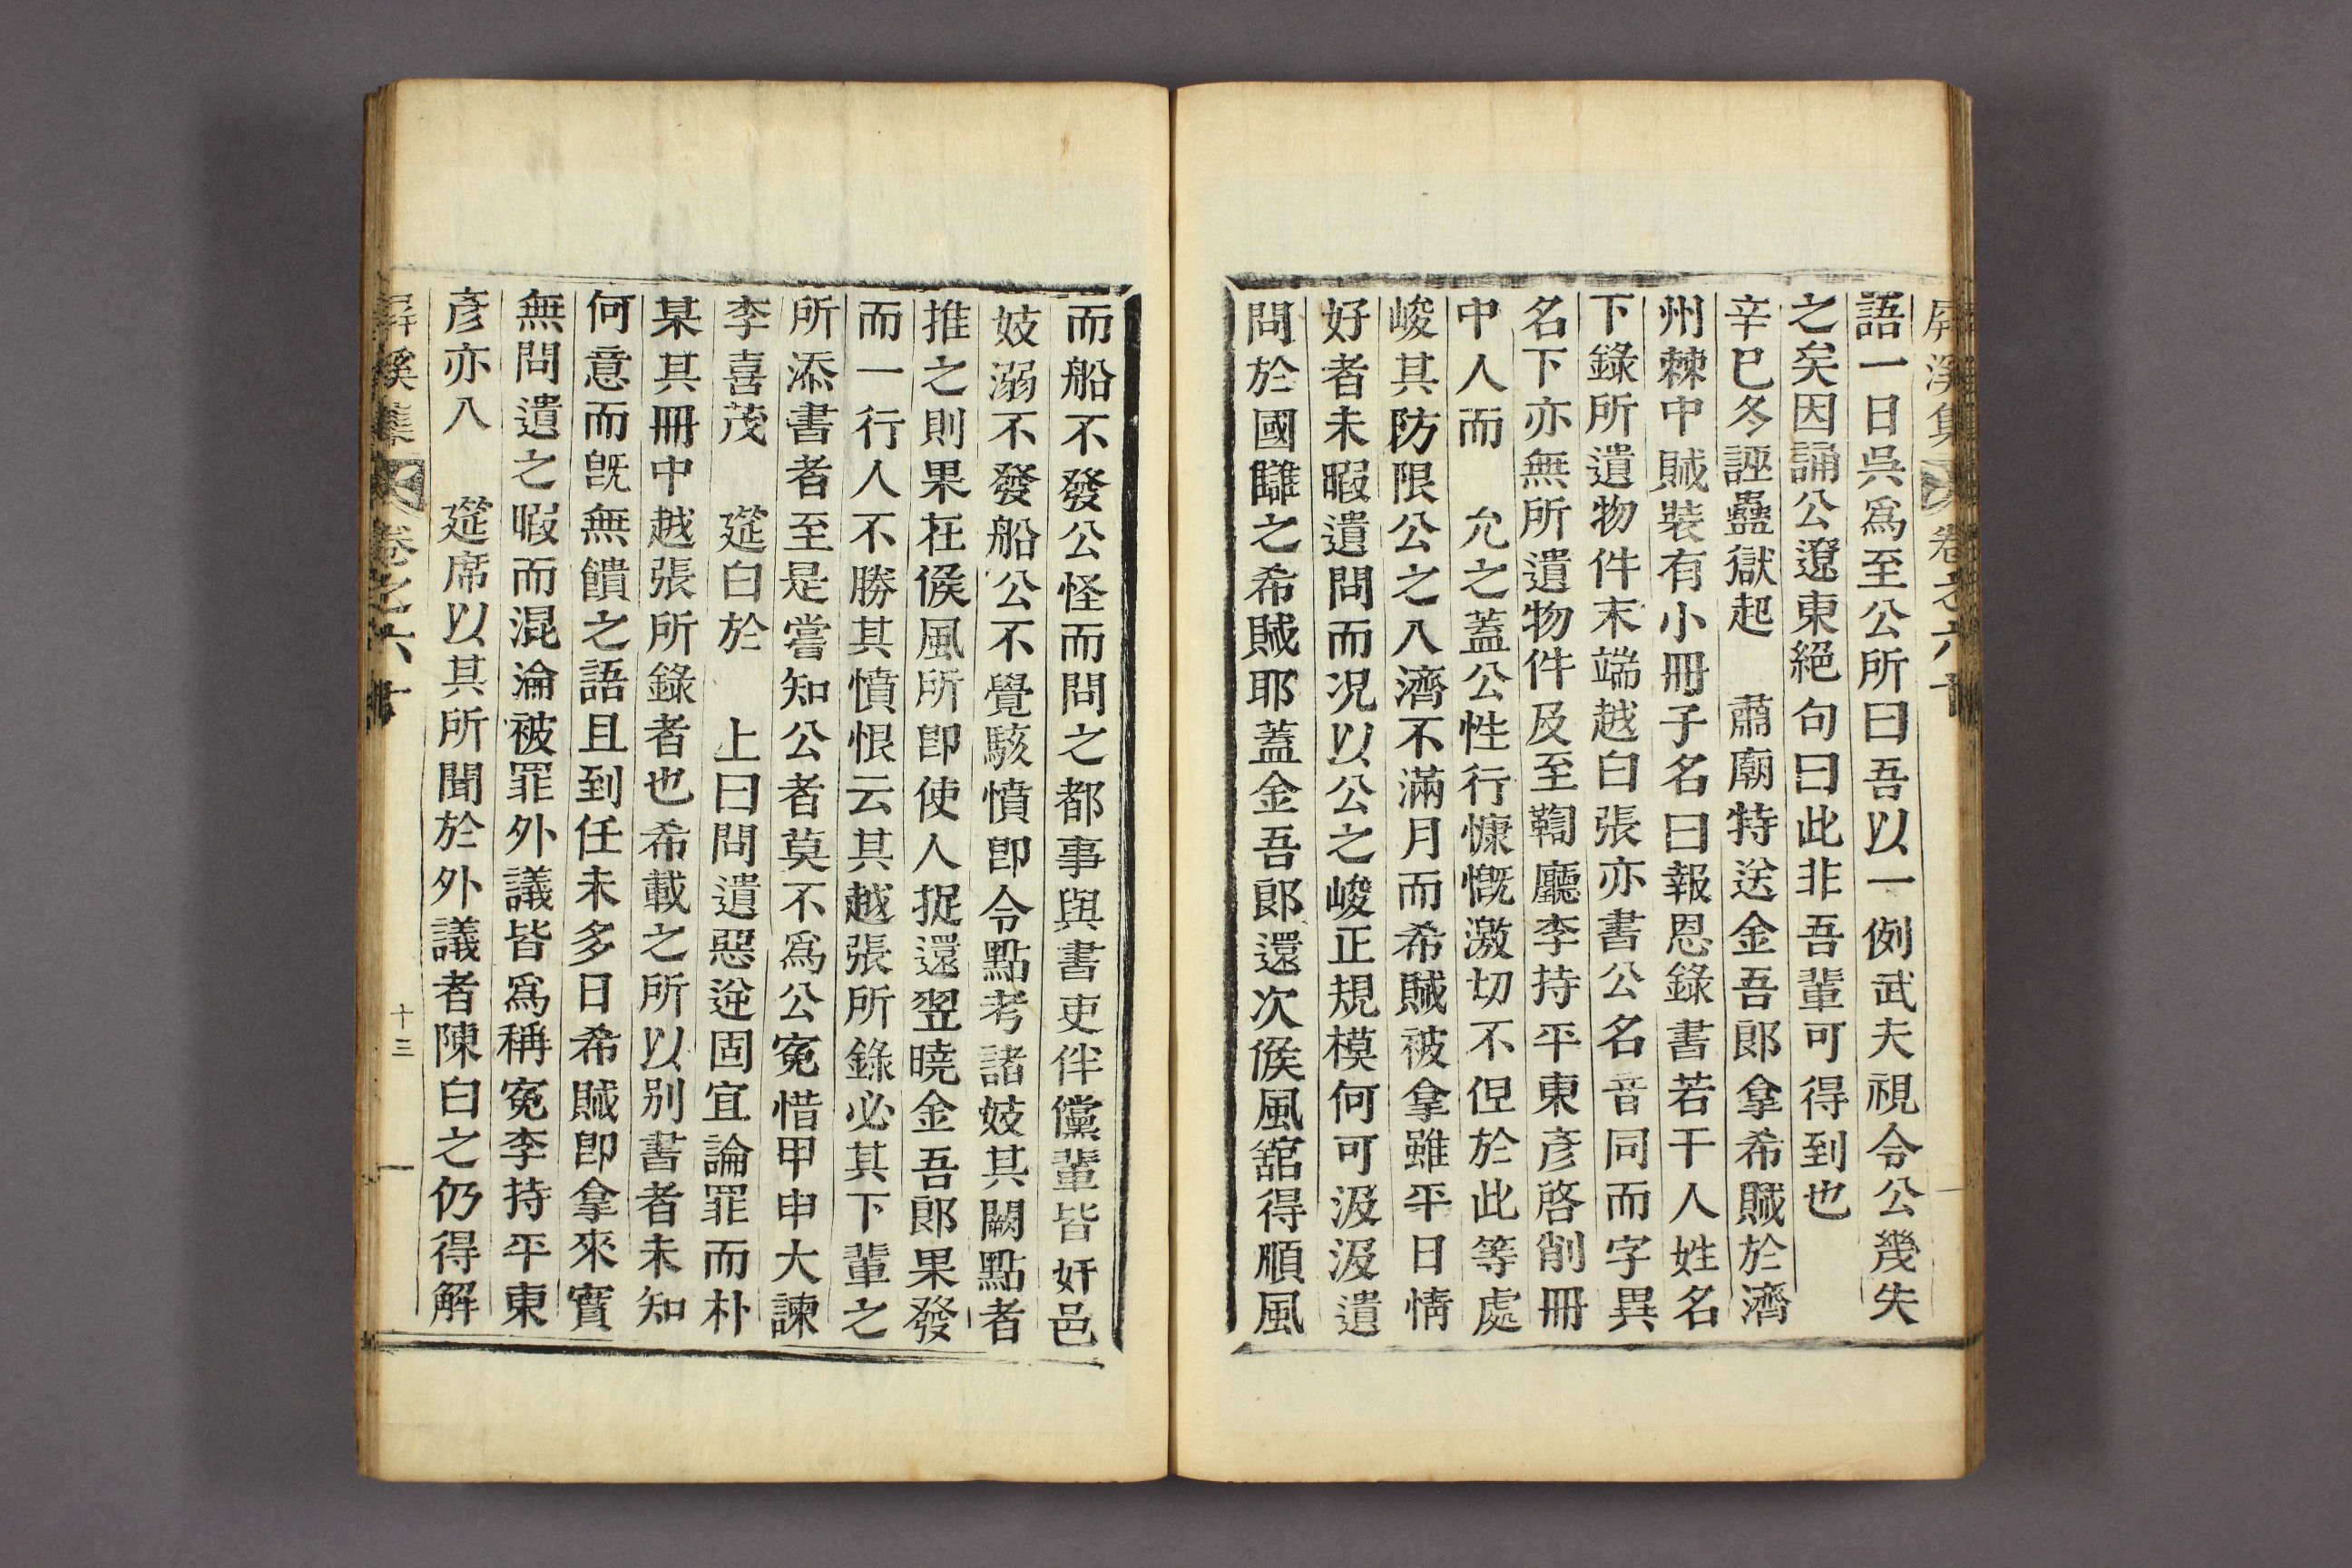 屏溪集 卷之六十
語一日吳爲至公所曰吾以一例武夫視令公幾失
之矣因誦公遼東絕句曰此非吾輩可得到也
辛巳冬誣蠱獄起 肅廟特送金吾郎拿希賊於濟
州棘中賊裝有小冊子名曰報恩錄書若干人姓名
下錄所遺物件末端越白張亦書公名音同而字異
名下亦無所遺物件及至鞫廳李持平東彥啓削冊
中人而 允之蓋公性行慷慨激切不但於此等處
峻其防限公之入濟不滿月而希賊被拿雖平日情
好者未暇遺問而况以公之峻正規模何可汲汲遺
問於國讎之希賊耶蓋金吾郎還次候風舘得順風
而船不發公怪而問之都事與書吏伴儻輩皆奸邑
妓溺不發船公不覺駭憤卽令點考諸妓其闕點者
推之則果在候風所卽使人捉還翌曉金吾郎果發
而一行人不勝其憤恨云其越張所錄必其下輩之
所添書者至是嘗知公者莫不爲公寃惜甲申大諫
李喜茂 筵白於 上曰問遺惡逆固宜論罪而朴
某其冊中越張所錄者也希載之所以別書者未知
何意而旣無饋之語且到任未多日希賊卽拿來實
無問遺之暇而混淪被罪外議皆爲稱寃李持平東
彥亦入 筵席以其所聞於外議者陳白之仍得解
屏溪集 卷之六十
十三